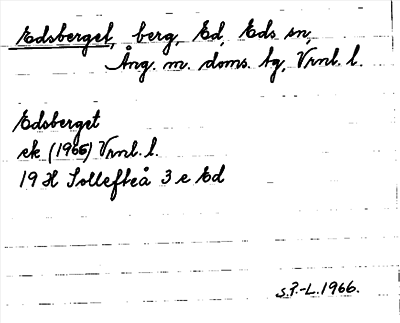 Edsberget, berg, Ed, Eds sn,
Ång. m. doms. tg, Vrnl. l.
Edsberget
ek (1966) Vrnl. l.
19 H Sollefteå 3 e Ed
S.P.-L. 1966.